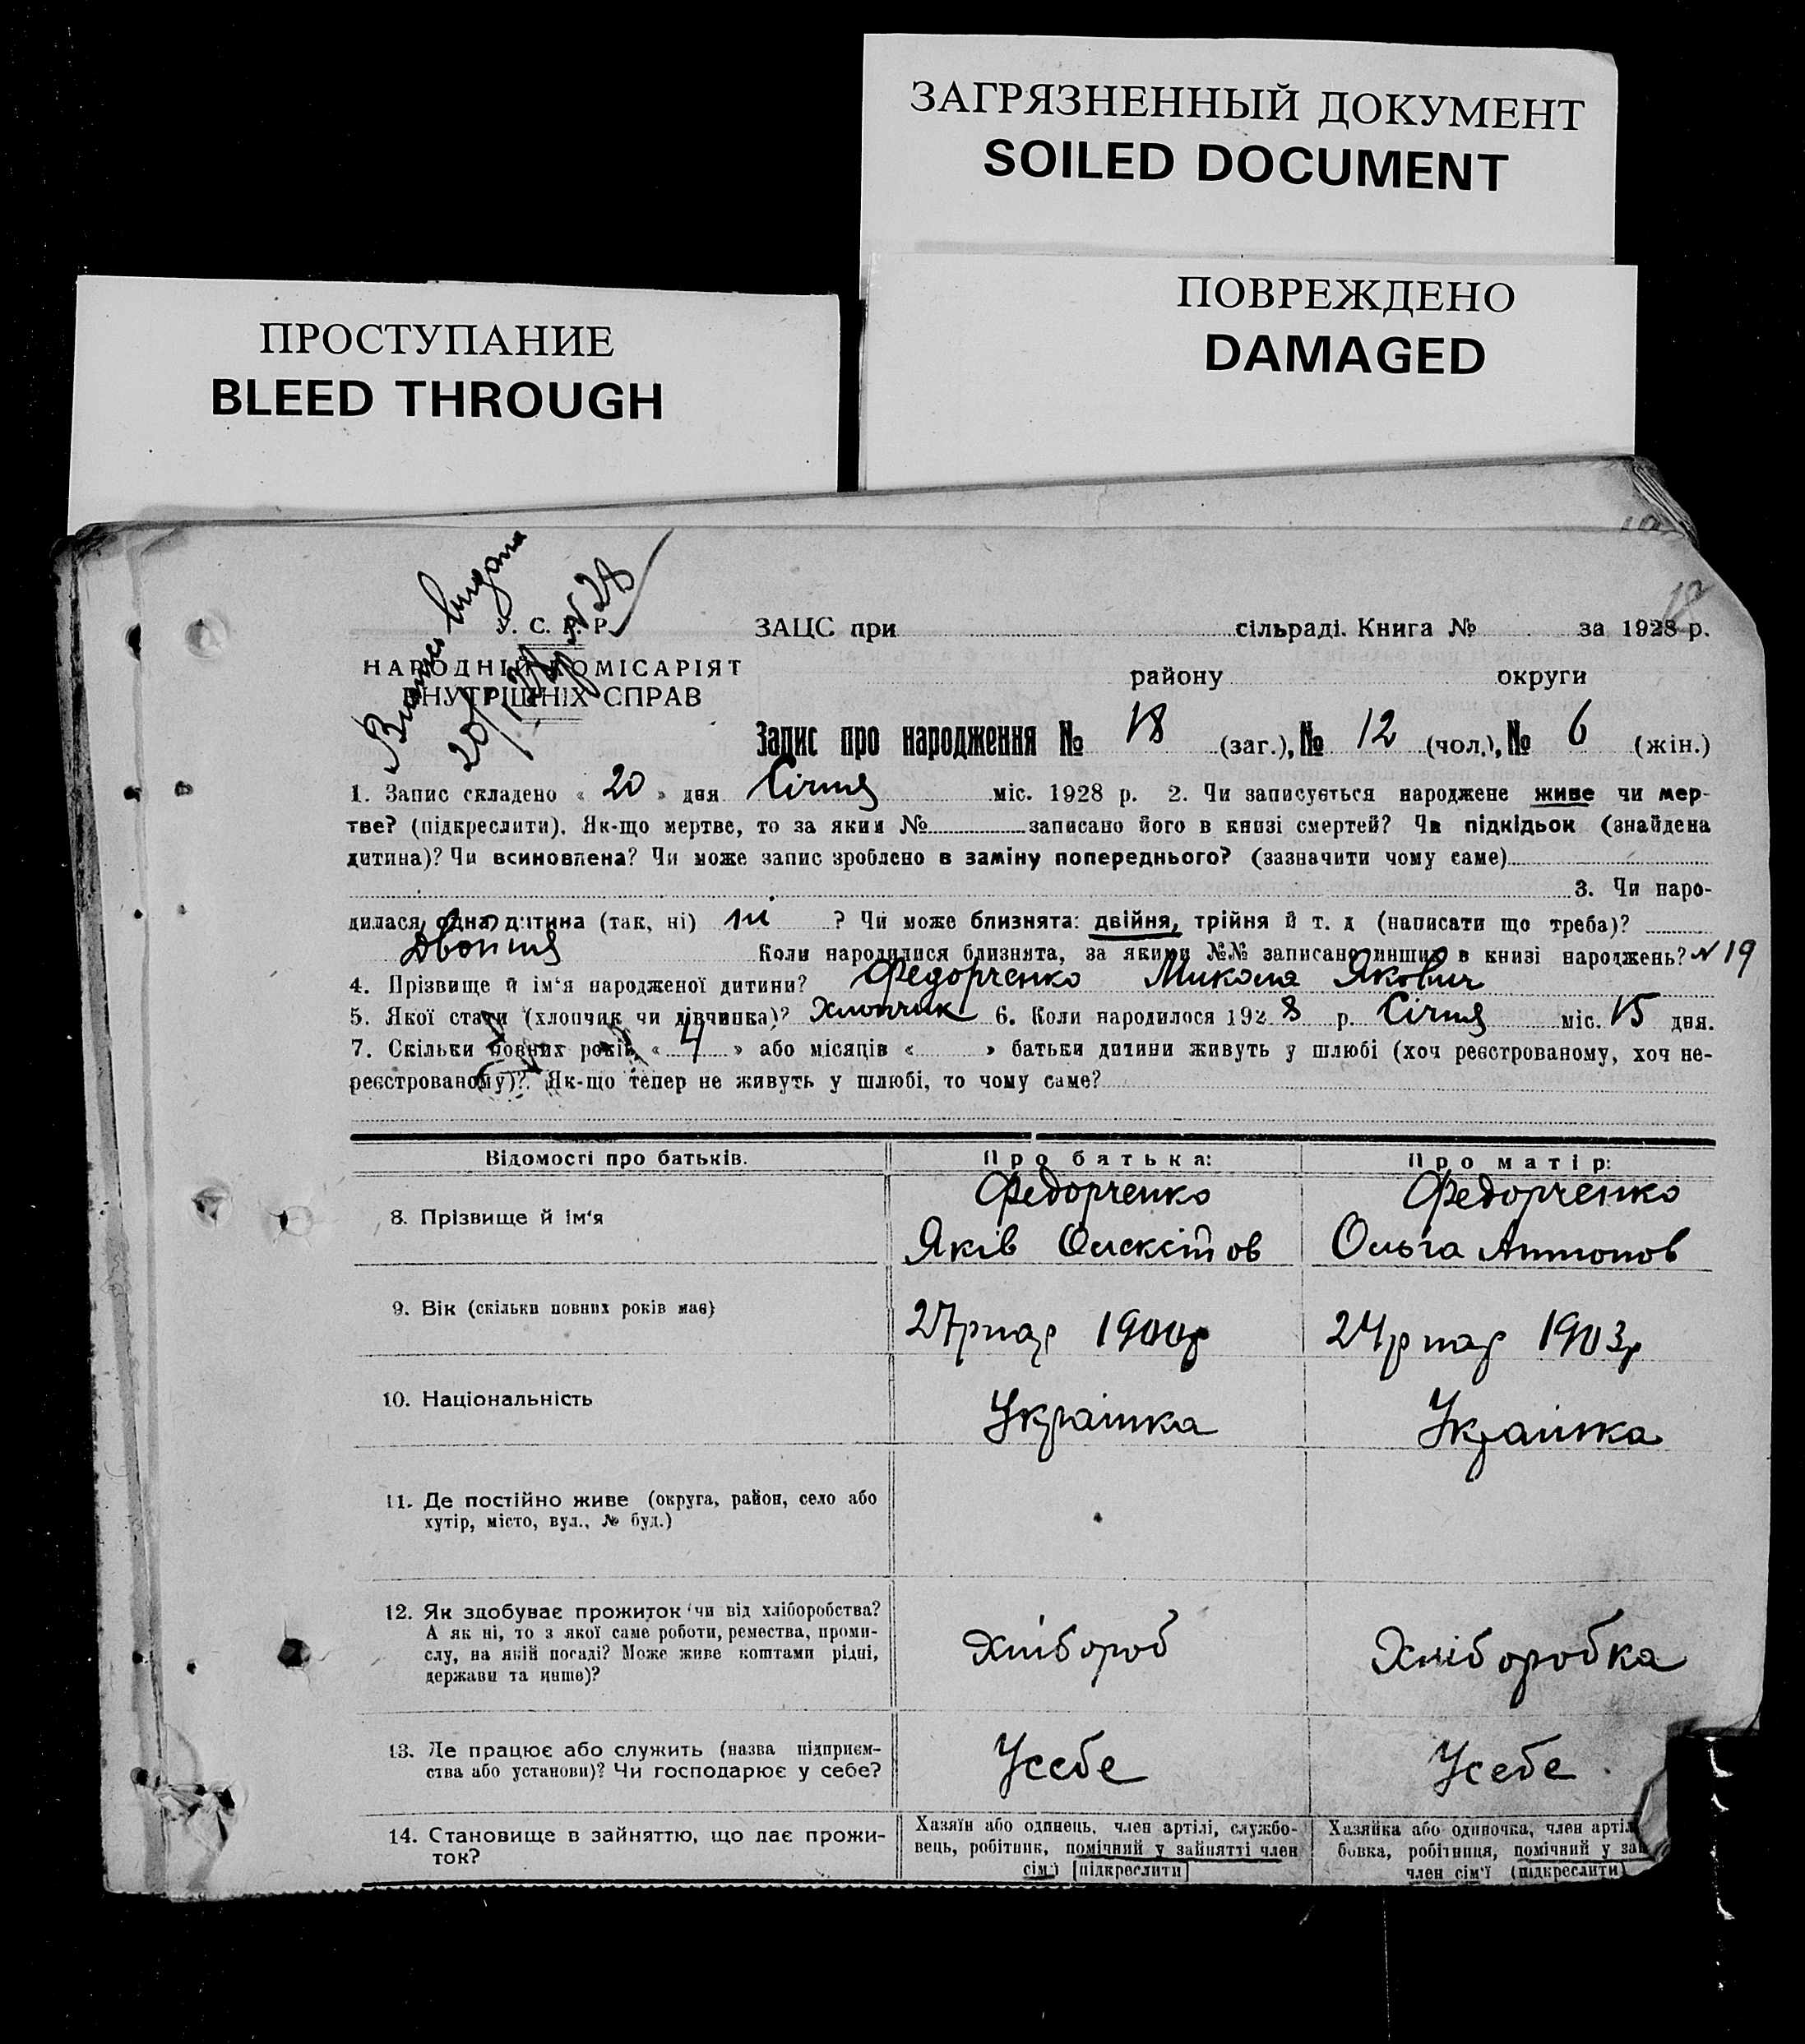 ЗАГРЯЗНЕННЫЙ ДОКУМЕНТ
SOILED DOCUMENT
ПОВРЕЖДЕНО
DAMAGED
ПРОСТУПАНИЕ
BLEED THROUGH
18
У. С. Р. Р.
НАРОДНІЙ КОМІСАРІЯТ
ВНУТРІШНІХ СПРАВ
ЗАЦС при сільраді. Книга № за 1928 р.
району округи
Запис про народження № 18 (заг.), № 12 (чол.), № 6 (жін.)
1. Запис складено « 20 » дня Січня міс. 1928 р. 2. Чи записується народжене живе чи мер-
тве? (підкреслити). Як-що мертве, то за яким № записано його в книзі смертей? Чи підкідьок (знайдена
дитина)? Чи всиновлена? Чи може запис зроблено в заміну попереднього? (зазначити чому саме)
3. Чи наро-
дилася одна дитина (так, ні) ні ? Чи може близнята: двійня, трійня й т. д (написати що треба)?
Двойня Коли народилися близнята, за якими №№ записано инших в книзі народжень? № 19
4. Прізвище й ім‘я народженої дитини? Федорченко Микола Якович
5. Якої стати (хлопчик чи дівчинка)? Хлопчик 6. Коли народилося 1928 р. Січня міс. 15 дня.
7. Скільки повних років « 4 » або місяців « » батьки дитини живуть у шлюбі (хоч реєстрованому, хоч не-
реєстрованому)? Як-що тепер не живуть у шлюбі, то чому саме?
Відомості про батьків. Про батька: Про матір:
8. Прізвище й ім‘я
Федорченко
Яків
Федорченко
Ольга Антонов
9. Вік (скільки повних років має)
27 р нар 1900 р
24 р нар 1903 р
10. Національність
Українка
Українка
11. Де постійно живе (округа, район, село або
хутір, місто, вул., № буд.)
12. Як здобуває прожиток чи від хліборобства?
А як ні, то з якої саме роботи, ремества, проми-
слу, на якій посаді? Може живе коштами рідні,
держави та инше)?
Хлібороб
Хліборобка
13. Де працює або служить (назва підприєм-
ства або установи)? Чи господарює у себе?
Усебе
Усебе
14. Становище в зайняттю, що дає прожи-
ток?
Хазяїн або одинець, член артілі, службо-
вець, робітник, помічний у зайнятті член
сім‘ї [підкреслити]
Хазяйка або одиночка, член артіл
бовка, робітниця, помічний у зай
член сім‘ї (підкреслити)